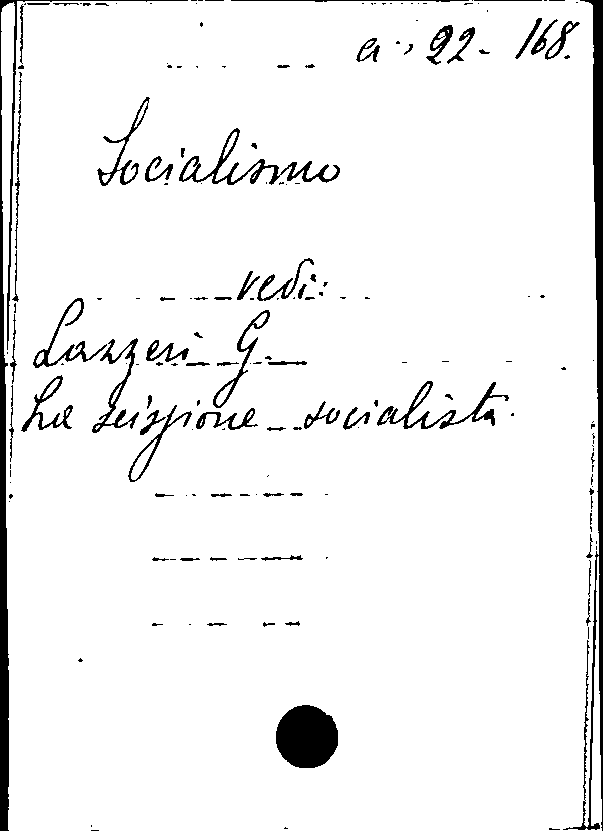 a., 22 - 168.
Socialismo
vedi:
Lazzeri G.
La scissione socialista.